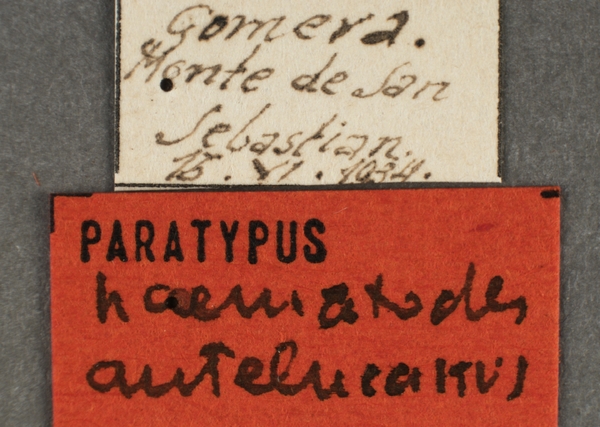 Gomera.
Monte de San
Sebastian.
15. VI. 1934.
PARATYPUS
haematodes
antelucanus